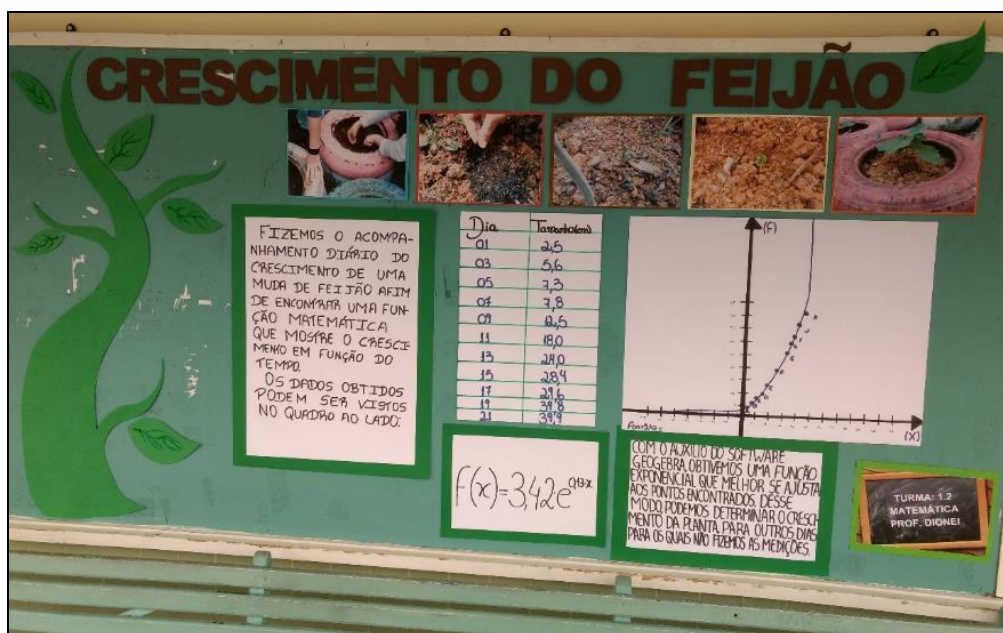 CRESCIMENTO DO FEIJÃO
FIZEMOS O ACOMPA-
NHAMENTO DIÁRIO DO
CRESCIMENTO DE UMA
MUDA DE FEIJÃO AFIM
DE ENCONTRAR UMA FUN-
ÇÃO MATEMÁTICA
QUE MOSTRE O CRESCI-
MENTO EM FUNÇÃO DO
TEMPO.
OS DADOS OBTIDOS
PODEM SER VISTOS
NO QUADRO AO LADO.
Dia Tamanho(cm)
01 2,5
03 5,6
05 7,3
07 7,8
09 12,5
11 18,0
13 24,0
15 28,4
17 29,6
19 39,8
21 39,9
f(x)=3,42e^0,13x
(F)
(X)
COM O AUXÍLIO DO SOFTWARE
GEOGEBRA OBTIVEMOS UMA FUNÇÃO
EXPONENCIAL QUE MELHOR SE AJUSTA
AOS PONTOS ENCONTRADOS. DESSE
MODO, PODEMOS DETERMINAR O CRESCI-
MENTO DA PLANTA PARA OUTROS DIAS
PARA OS QUAIS NÃO FIZEMOS AS MEDIÇÕES.
TURMA: 1.2
MATEMÁTICA
PROF. DIONEI